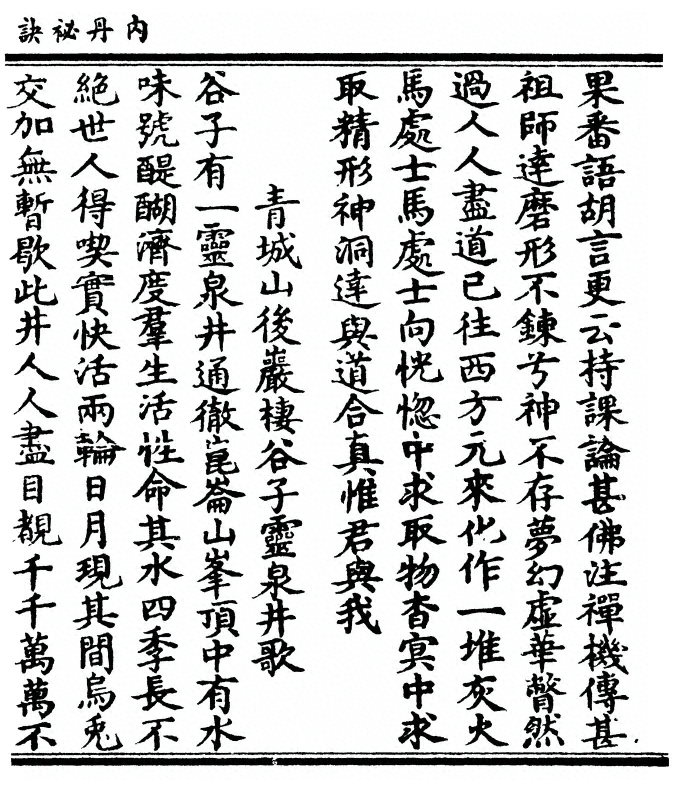 內丹祕訣
果番語胡言更云持課論甚佛注禪機傳甚
祖師達磨形不鍊兮神不存夢幻虛華瞥然
過人人盡道已往西方元來化作一堆灰火
馬處士馬處士向恍惚中求取物杳冥中求
取精形神洞達與道合真惟君與我
青城山後巖棲谷子靈泉井歌
谷子有一靈泉井通徹崑崙山峯頂中有水
味號醍醐濟度羣生活性命其水四季長不
絕世人得喫實快活兩輪日月現其間烏兎
交加無暫歇此井人人盡目覩千千萬萬不